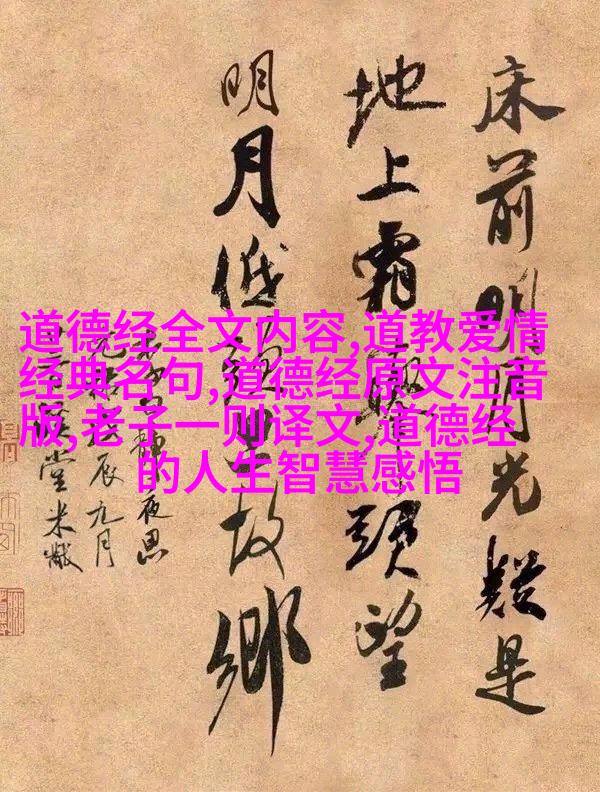 道德经全文内容,道教爱情
经典名句,道德经原文注音
版,老子一则译文,道德经
的人生智慧感悟
床前明月光疑是
地上霜舉頭望
明月低故鄉
夜思
辰九月
堂米黻